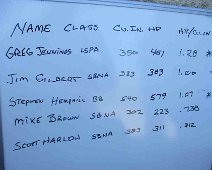 NAME CLASS CU.IN HP HP/CU.IN
GREG JENNINGS LSPA 350 451 1.28 *
JIM GILBERT SBNA 383 383 1.00
STEPHEN BB 540 579 1.07 *
MIKE BROWN SBNA 302 223 .738
SCOTT HARLOW SBNA 383 311 .812